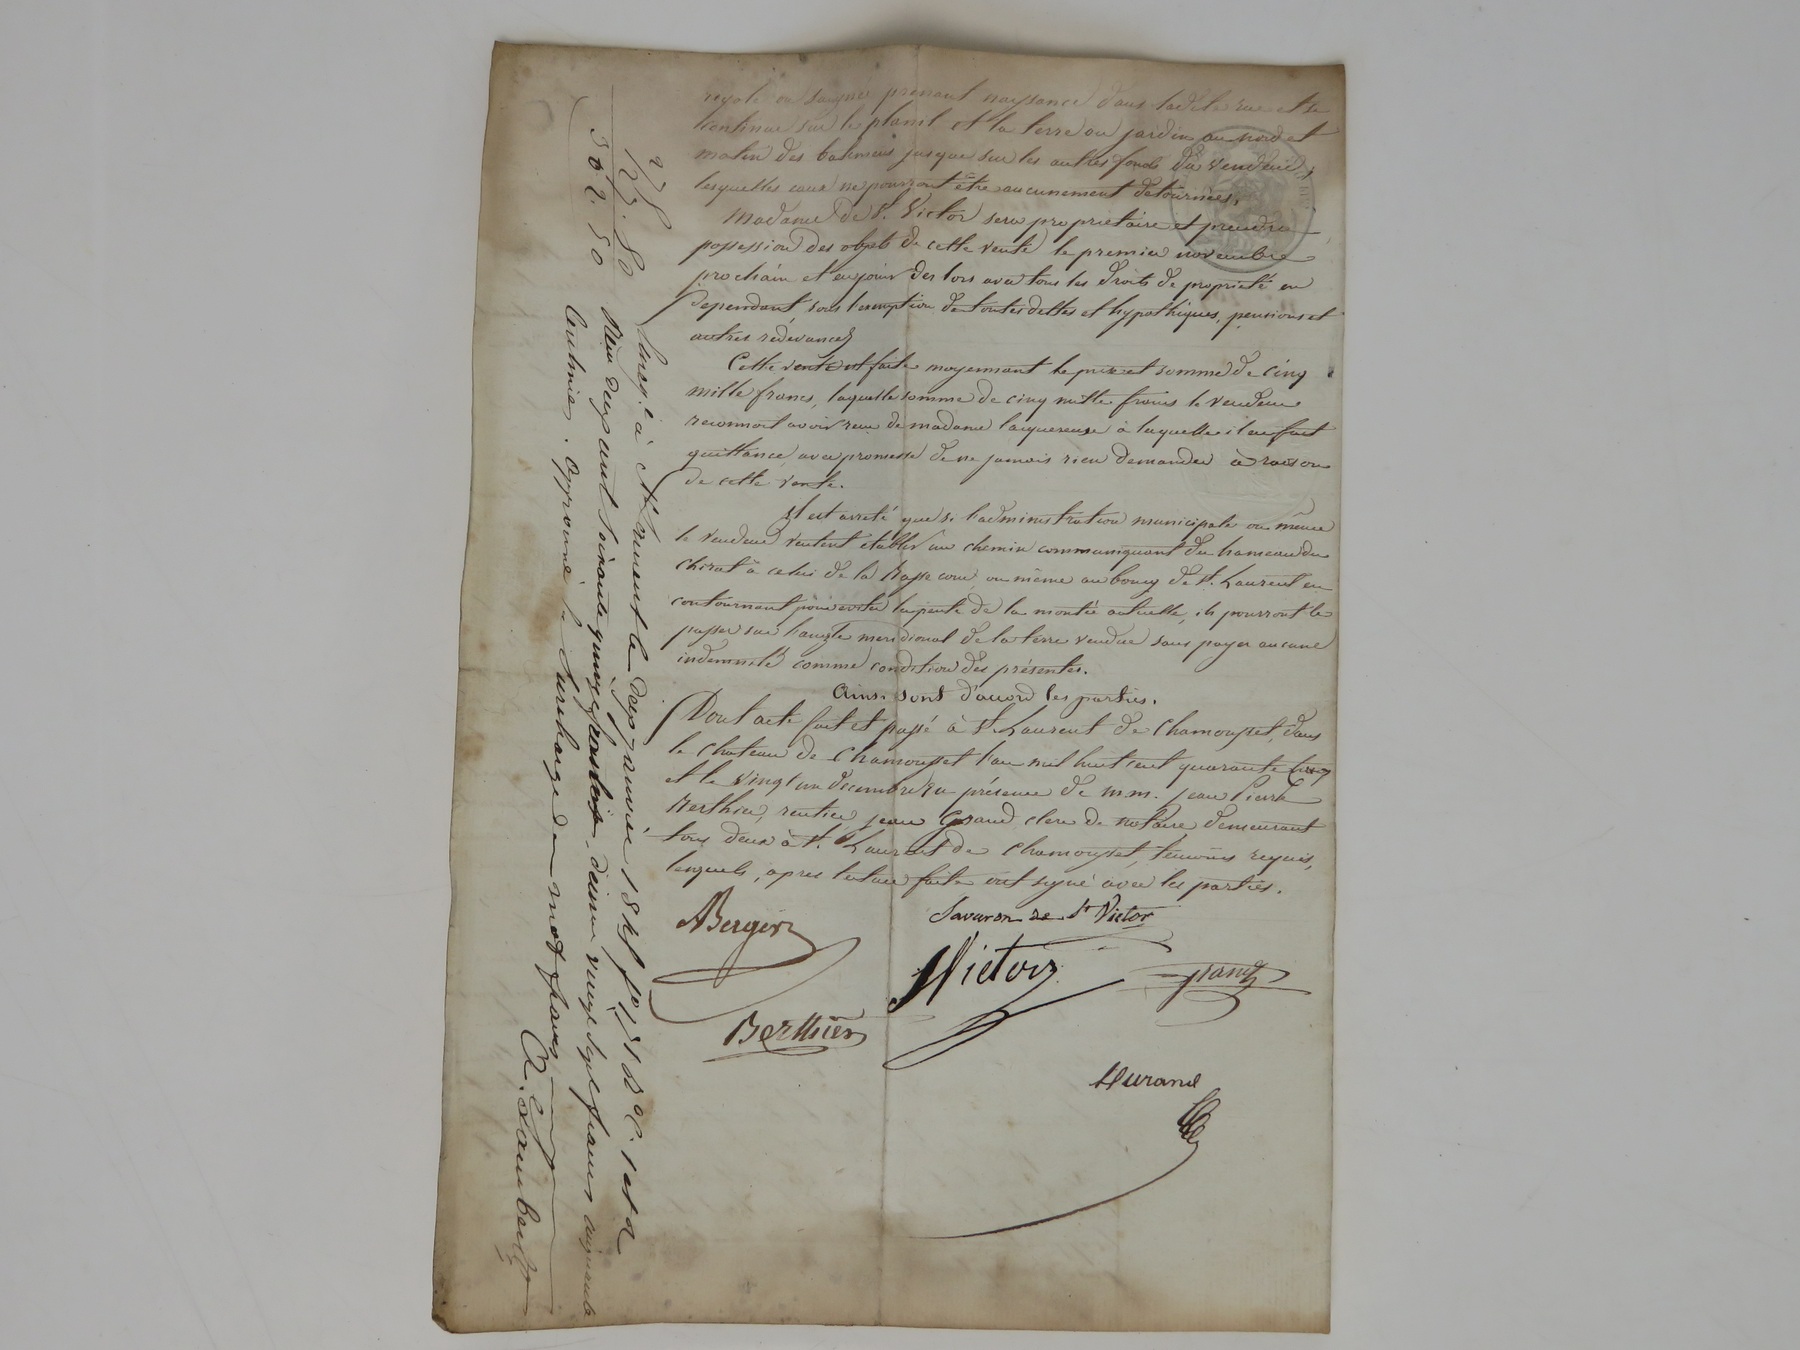 rigole ou saigné prenant naissance dans ladite rue et se
continue sur le plansl et la terre ou jardin au nord et
matin des batimens jusque sur les autres fonds du vendeur,
lesquelles eaux ne pourront être aucunement détournées.
Madame de St. Victor sera propriétaire et prendra
possession des objets de cette vente le premier novembre
prochain et en jouir des lors avec tous les droits de propriété en
dépendant, sous l'exemption de toutes dettes et hypothèques, pensions et
autres rédevances
Cette vente est faite moyennant le prix et somme de cinq
mille francs, laquelle somme de cinq mille francs le vendeur
reconnoit avoir reçu de madame l'acquereuse à laquelle il en fait
quittance, avec promesse de ne jamais rien demander à raison
de cette vente.
Il est arreté que si l'administration municipale ou même
le vendeur veulent établir un chemin communiquant du hameau du
Chirat à celui de la Basse cour ou même au bourg de St. Laurent en
contournant pour eviter la pente de la montée actuelle, ils pourront le
passer sur l'angle meridional de la terre vendue sans payer aucune
indemnité comme condition des présentes.
Ainsi sont d'accord les parties.
Dont acte fait et passé à St. Laurent de Chamousset, dans
le chateau de Chamousset l'an mil huit cent quarante cinq
et le vingt un décembre en présence de m.m. Jean Pierre
Berthier, rentier, Jean Grand, clerc de notaire demeurant
tous deux à St. Laurent de Chamousset, témoins requis,
lesquels, après lecture faite ont signé avec les parties.
ABerger
Savaron de St Victor
StVictor
Berthier
Durand
27.50
302.50
Enreg.é à St Laurent le décembre 1845 f° 151 R° C. 1 et 2
Reçu deux cent soixante quinze francs, décime vingt sept francs cinquante
Centimes. approuvé la surcharge du mot francs